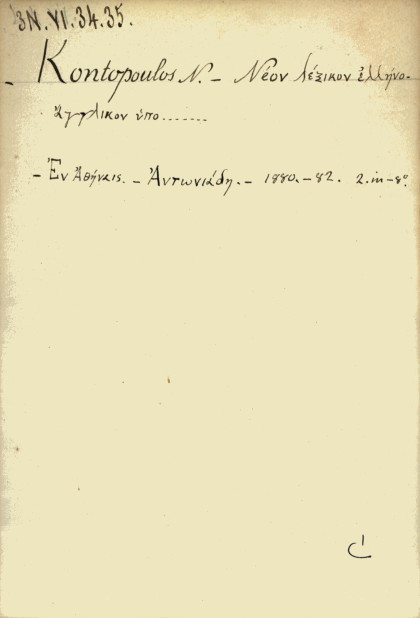 3N.VI.34.35.
- Kontopoulos N. - Νέον λέξικον ἑλληνο-
ἀγγλικον ὑπο.......
- Ἐν Ἀθήναις. - Ἀντωνιάδη. - 1880.-82. 2. in-8°.